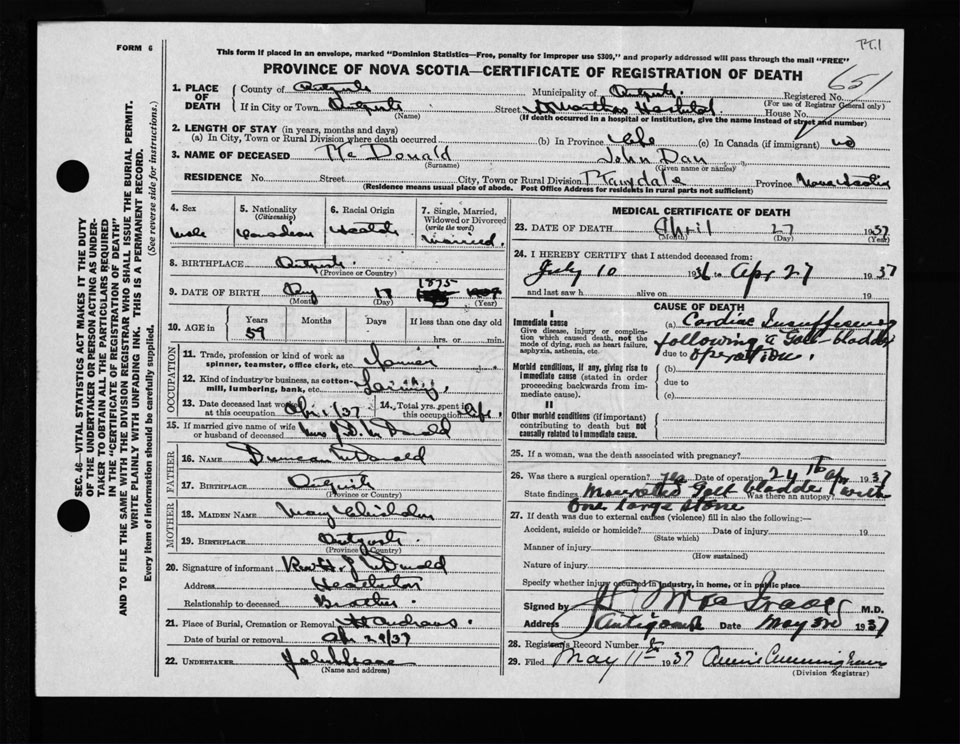 PT.1
FORM 6
This form if placed in an envelope, marked "Dominion Statistics—Free, penalty for improper use $300," and properly addressed will pass through the mail "FREE"
PROVINCE OF NOVA SCOTIA—CERTIFICATE OF REGISTRATION OF DEATH
651
SEC. 46—VITAL STATISTICS ACT MAKES IT THE DUTY
OF THE UNDERTAKER OR PERSON ACTING AS UNDER-
TAKER TO OBTAIN ALL THE PARTICULARS REQUIRED
IN THE "CERTIFICATE OF REGISTRATION OF DEATH"
AND TO FILE THE SAME WITH THE DIVISION REGISTRAR WHO SHALL ISSUE THE BURIAL PERMIT.
WRITE PLAINLY WITH UNFADING INK. THIS IS A PERMANENT RECORD.
Every item of information should be carefully supplied. (See reverse side for instructions.)
1. PLACE OF DEATH
County of Antgish Municipality of Antgish. Registered No.
(For use of Registrar General only)
If in City or Town Antgish Street St Marthas Hospital House No.
(Name) (If death occurred in a hospital or institution, give the name instead of street and number)
2. LENGTH OF STAY (in years, months and days)
(a) In City, Town or Rural Division where death occurred (b) In Province Life (c) In Canada (if immigrant) no
3. NAME OF DECEASED McDonald John Dan
(Surname) (Given name or names)
RESIDENCE No. Street City, Town or Rural Division Province Nova Scotia
(Residence means usual place of abode. Post Office Address for residents in rural parts not sufficient)
4. Sex
Male
5. Nationality
(Citizenship)
Canadian
6. Racial Origin
7. Single, Married,
Widowed or Divorced
(write the word)
Married.
8. BIRTHPLACE Antgish.
(Province or Country)
9. DATE OF BIRTH 1875
(Month) (Day) (Year)
10. AGE in Years Months Days If less than one day old
59 hrs. or min.
OCCUPATION
11. Trade, profession or kind of work as
spinner, teamster, office clerk, etc. Farmer
12. Kind of industry/or business, as cotton-
mill, lumbering, bank, etc. Farming
13. Date deceased last worked
at this occupation Apr 1/37
14. Total yrs. spent in
this occupation Life.
15. If married give name of wife
or husband of deceased Mrs J D McDonald
FATHER
16. NAME Duncan McDonald
17. BIRTHPLACE Antgish
(Province or Country)
MOTHER
18. MAIDEN NAME Mary Chisholm
19. BIRTHPLACE Antgish.
(Province or Country)
20. Signature of informant Rev H. J. McDonald
Address Heatherton
Relationship to deceased Brother.
21. Place of Burial, Cremation or Removal St Andrews.
Date of burial or removal Apr 29/37
22. UNDERTAKER
(Name and address)
MEDICAL CERTIFICATE OF DEATH
23. DATE OF DEATH April 27 1937
(Month) (Day) (Year)
24. I HEREBY CERTIFY that I attended deceased from:
July 10 1936 to Apr 27 1937
and last saw h alive on 19
CAUSE OF DEATH
I
Immediate cause
Give disease, injury or complica-
tion which caused death, not the
mode of dying, such as heart failure,
asphyxia, asthenia, etc.
(a) Cardiac Insufficiency
following a Gall bladder
due to operation.
Morbid conditions, if any, giving rise to
immediate cause (stated in order
proceeding backwards from im-
mediate cause).
(b)
due to
(c)
II
Other morbid conditions (if important)
contributing to death but not
causally related to immediate cause.
25. If a woman, was the death associated with pregnancy?
26. Was there a surgical operation? Yes Date of operation 24th Apr 1937
State findings Gall bladder with Was there an autopsy?
one large stone
27. If death was due to external causes (violence) fill in also the following:—
Accident, suicide or homicide? Date of injury 19
(State which)
Manner of injury
(How sustained)
Nature of injury
Specify whether injury occurred in industry, in home, or in public place
Signed by M.D.
Address Antigonish Date May 3rd 1937
28. Registrar's Record Number
29. Filed May 11th 1937 Annie Cunningham
(Division Registrar)